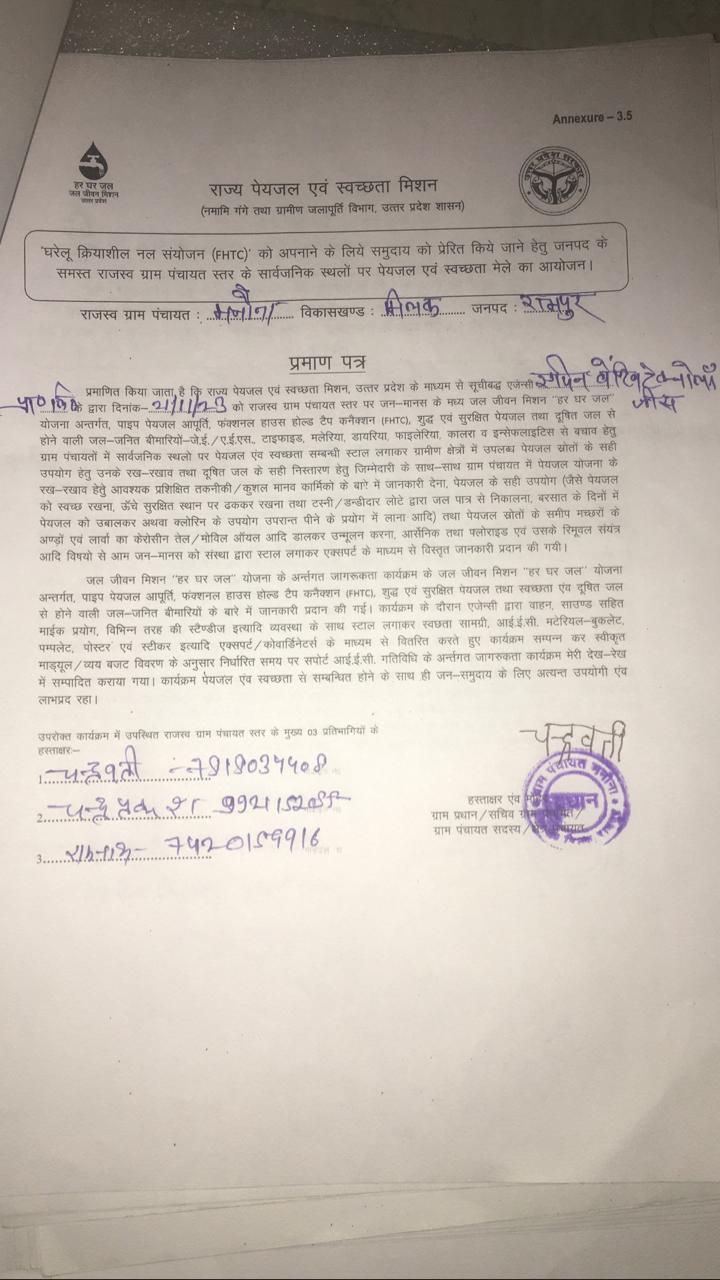 Annexure – 3.5
हर घर जल
जल जीवन मिशन
उत्तर प्रदेश
उत्तर प्रदेश सरकार
राज्य पेयजल एवं स्वच्छता मिशन
(नमामि गंगे तथा ग्रामीण जलापूर्ति विभाग, उत्तर प्रदेश शासन)
'घरेलू क्रियाशील नल संयोजन (FHTC)' को अपनाने के लिये समुदाय को प्रेरित किये जाने हेतु जनपद के
समस्त राजस्व ग्राम पंचायत स्तर के सार्वजनिक स्थलों पर पेयजल एवं स्वच्छता मेले का आयोजन।
राजस्व ग्राम पंचायत : विकासखण्ड : मिलक जनपद : रामपुर
प्रमाण पत्र
प्रमाणित किया जाता है कि राज्य पेयजल एवं स्वच्छता मिशन, उत्तर प्रदेश के माध्यम से सूचीबद्ध एजेन्सी
प्रा० लि० के द्वारा दिनांक– 21/11/23 को राजस्व ग्राम पंचायत स्तर पर जन–मानस के मध्य जल जीवन मिशन "हर घर जल"
योजना अन्तर्गत, पाइप पेयजल आपूर्ति, फंक्शनल हाउस होल्ड टैप कनैक्शन (FHTC), शुद्ध एवं सुरक्षित पेयजल तथा दूषित जल से
होने वाली जल–जनित बीमारियों–जे.ई./ए.ई.एस. टाइफाइड, मलेरिया, डायरिया, फाइलेरिया, कालरा व इन्सेफलाइटिस से बचाव हेतु
ग्राम पंचायतों में सार्वजनिक स्थलो पर पेयजल एंव स्वच्छता सम्बन्धी स्टाल लगाकर ग्रामीण क्षेत्रों में उपलब्ध पेयजल स्रोतों के सही
उपयोग हेतु उनके रख–रखाव तथा दूषित जल के सही निस्तारण हेतु जिम्मेदारी के साथ–साथ ग्राम पंचायत में पेयजल योजना के
रख–रखाव हेतु आवश्यक प्रशिक्षित तकनीकी/कुशल मानव कार्मिको के बारे में जानकारी देना, पेयजल के सही उपयोग (जैसे पेयजल
को स्वच्छ रखना, ऊँचे सुरक्षित स्थान पर ढककर रखना तथा टस्नी/डन्डीदार लोटे द्वारा जल पात्र से निकालना, बरसात के दिनों में
पेयजल को उबालकर अथवा क्लोरिन के उपयोग उपरान्त पीने के प्रयोग में लाना आदि) तथा पेयजल स्रोतों के समीप मच्छरों के
अण्डों एवं लार्वा का केरोसीन तेल/मोविल ऑयल आदि डालकर उन्मूलन करना, आर्सेनिक तथा फ्लोराइड एवं उसके रिमूवल संयंत्र
आदि विषयो से आम जन–मानस को संस्था द्वारा स्टाल लगाकर एक्सपर्ट के माध्यम से विस्तृत जानकारी प्रदान की गयी।
जल जीवन मिशन "हर घर जल" योजना के अर्न्तगत जागरूकता कार्यक्रम के जल जीवन मिशन "हर घर जल" योजना
अन्तर्गत, पाइप पेयजल आपूर्ति, फंक्शनल हाउस होल्ड टैप कनैक्शन (FHTC), शुद्ध एवं सुरक्षित पेयजल तथा स्वच्छता एंव दूषित जल
से होने वाली जल–जनित बीमारियों के बारे में जानकारी प्रदान की गई। कार्यक्रम के दौरान एजेन्सी द्वारा वाहन, साउण्ड सहित
माईक प्रयोग, विभिन्न तरह की स्टैण्डीज इत्यादि व्यवस्था के साथ स्टाल लगाकर स्वछता सामग्री, आई.ई.सी. मटेरियल–बुकलेट,
पम्पलेट, पोस्टर एवं स्टीकर इत्यादि एक्सपर्ट/कोवार्डिनेटर्स के माध्यम से वितरित करते हुए कार्यक्रम सम्पन्न कर स्वीकृत
माड्यूल/व्यय बजट विवरण के अनुसार निर्धारित समय पर सपोर्ट आई.ई.सी. गतिविधि के अर्न्तगत जागरुकता कार्यक्रम मेरी देख–रेख
में सम्पादित कराया गया। कार्यक्रम पेयजल एंव स्वच्छता से सम्बन्धित होने के साथ ही जन–समुदाय के लिए अत्यन्त उपयोगी एंव
लाभप्रद रहा।
उपरोक्त कार्यक्रम में उपस्थित राजस्व ग्राम पंचायत स्तर के मुख्य 03 प्रतिभागियों के
हस्ताक्षर:–
चन्द्रवती
1. चन्द्रवती
2.
3. 7420159916
हस्ताक्षर एंव
ग्राम प्रधान/सचिव ग्राम
ग्राम पंचायत सदस्य/
ग्राम पंचायत मनौना
प्रधान